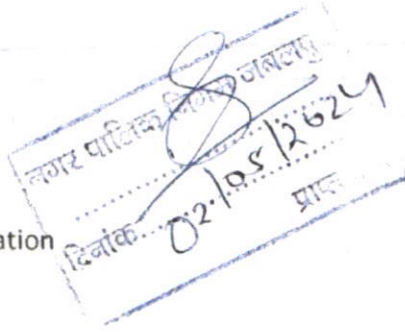 नगर पालिक निगम जबलपु
दिनांक 02/05/2024
प्राप्त
ation